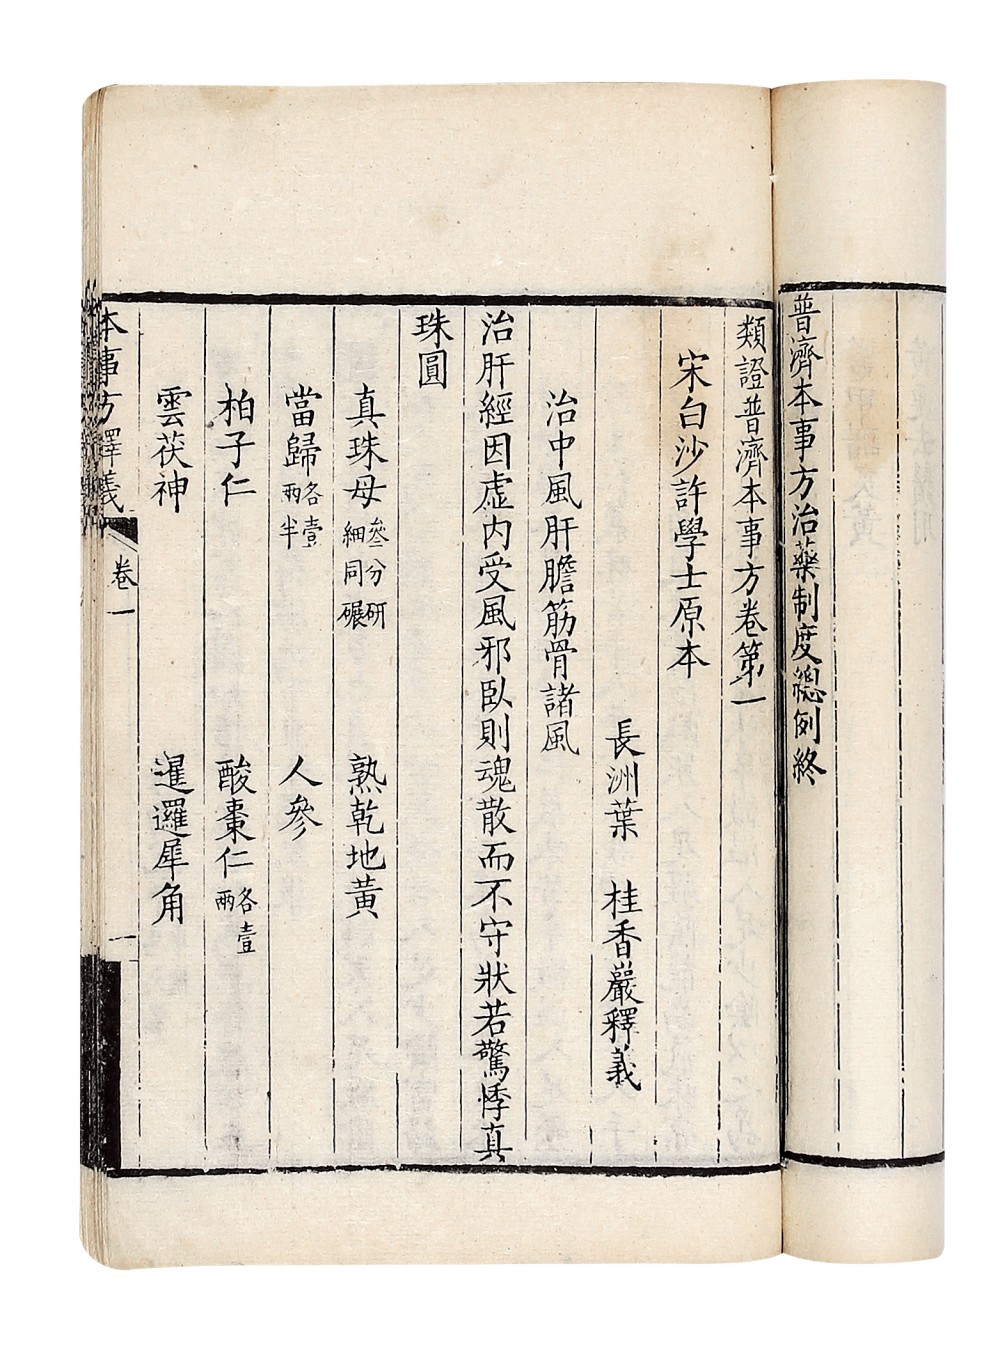 普濟本事方治藥制度總例終
類證普濟本事方卷第一
宋白沙許學士原本
長洲葉 桂香巖釋義
治中風肝膽筋骨諸風
治肝經因虛內受風邪臥則魂散而不守狀若驚悸真
珠圓
真珠母叁分研細同碾 熟乾地黃
當歸各壹兩半 人參
柏子仁 酸棗仁各壹兩
雲茯神 暹邏犀角
本事方釋義 卷一 一